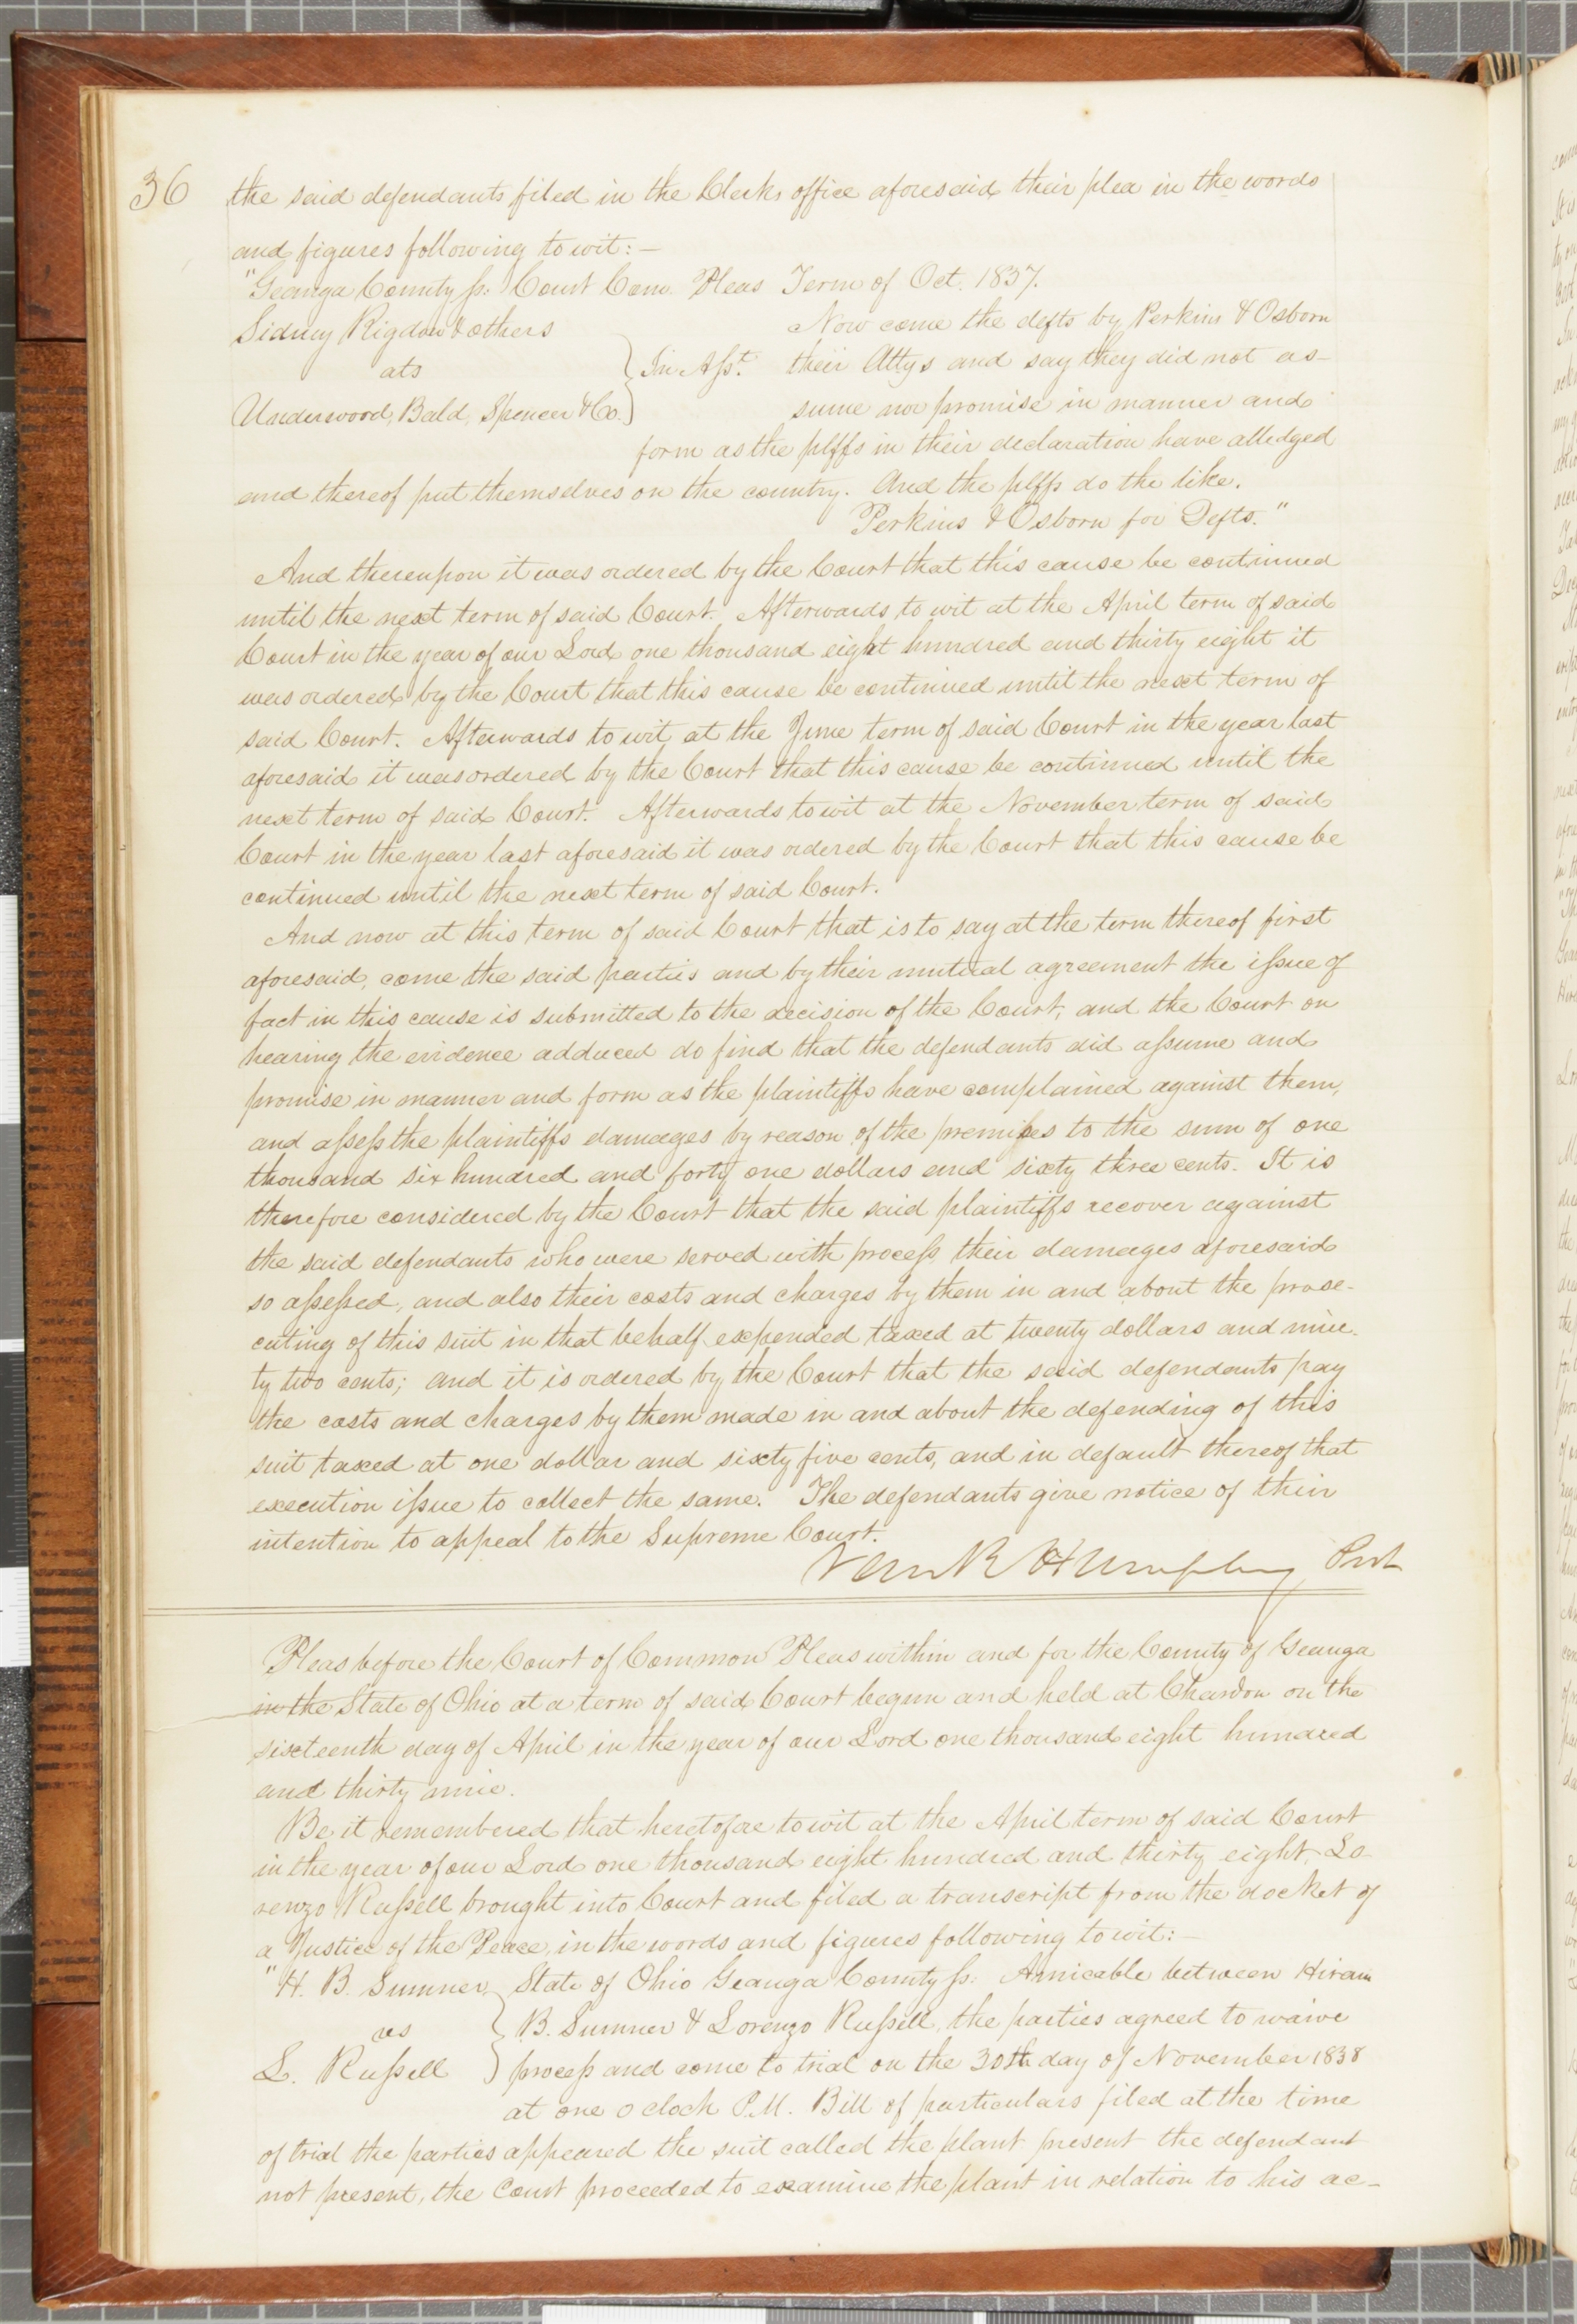 36
the said defendants filed in the Clerks office aforesaid their plea in the words
and figures following to wit:—
"Geauga County ss. Court Com. Pleas Term of Oct. 1837.
Sidney Rigdon & others
ats
Underwood, Bald, Spencer & Co.
In Asst.
Now come the defts by Perkins & Osborn
their Attys and say they did not as-
sume nor promise in manner and
form as the plffs in their declaration have alledged
and thereof put themselves on the country. And the plffs do the like.
Perkins & Osborn for Defts."
And thereupon it was ordered by the Court that this cause be continued
until the next term of said Court. Afterwards to wit at the April term of said
Court in the year of our Lord one thousand eight hundred and thirty eight it
was ordered by the Court that this cause be continued until the next term of
said Court. Afterwards to wit at the June term of said Court in the year last
aforesaid it was ordered by the Court that this cause be continued until the
next term of said Court. Afterwards to wit at the November term of said
Court in the year last aforesaid it was ordered by the Court that this cause be
continued until the next term of said Court.
And now at this term of said Court that is to say at the term thereof first
aforesaid, come the said parties and by their mutual agreement the issue of
fact in this cause is submitted to the decision of the Court, and the Court on
hearing the evidence adduced do find that the defendants did assume and
promise in manner and form as the plaintiffs have complained against them,
and assess the plaintiffs damages by reason of the premises to the sum of one
thousand six hundred and forty one dollars and sixty three cents. It is
therefore considered by the Court that the said plaintiffs recover against
the said defendants who were served with process their damages aforesaid
so assessed, and also their costs and charges by them in and about the prose-
cuting of this suit in that behalf expended taxed at twenty dollars and nine-
ty two cents; and it is ordered by the Court that the said defendants pay
the costs and charges by them made in and about the defending of this
suit taxed at one dollar and sixty five cents, and in default thereof that
execution issue to collect the same. The defendants give notice of their
intention to appeal to the Supreme Court.
Van R Humphrey Prst
Pleas before the Court of Common Pleas within and for the County of Geauga
in the State of Ohio at a term of said Court begun and held at Chardon on the
sixteenth day of April in the year of our Lord one thousand eight hundred
and thirty nine.
Be it remembered that heretofore to wit at the April term of said Court
in the year of our Lord one thousand eight hundred and thirty eight, Lo-
renzo Russell brought into Court and filed a transcript from the docket of
a Justice of the Peace, in the words and figures following to wit:—
"H. B. Sumner
vs
L. Russell
State of Ohio Geauga County ss: Amicable between Hiram
B. Sumner & Lorenzo Russell, the parties agreed to waive
process and come to trial on the 30th day of November 1838
at one o clock P.M. Bill of particulars filed at the time
of trial the parties appeared the suit called the plant present the defendant
not present, the Court proceeded to examine the plant in relation to his ac-